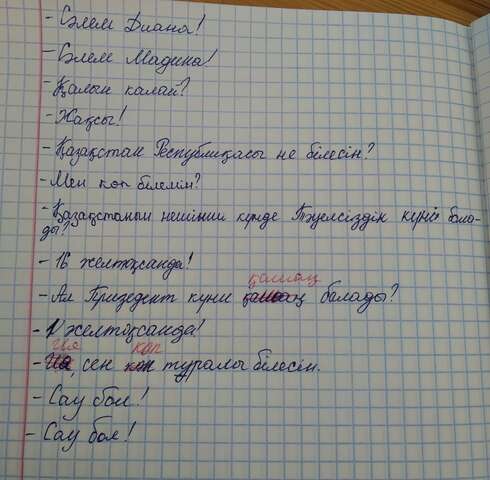 - Сәлем Диана!
- Сәлем Мадина!
- Қалың калай?
- Жақсы!
- Қазақстан Республикасы не білесің?
- Мен көп білемін?
- Қазақстанын нешінші күнде Тәуелсіздік күні бола-
ды?
- 16 желтоқсанда!
қашан
- Ал Призедент күни балады?
- 1 желтоқсанда!
Иә көп
- сен туралы білесін.
- Сау бол!
- Сау бол!